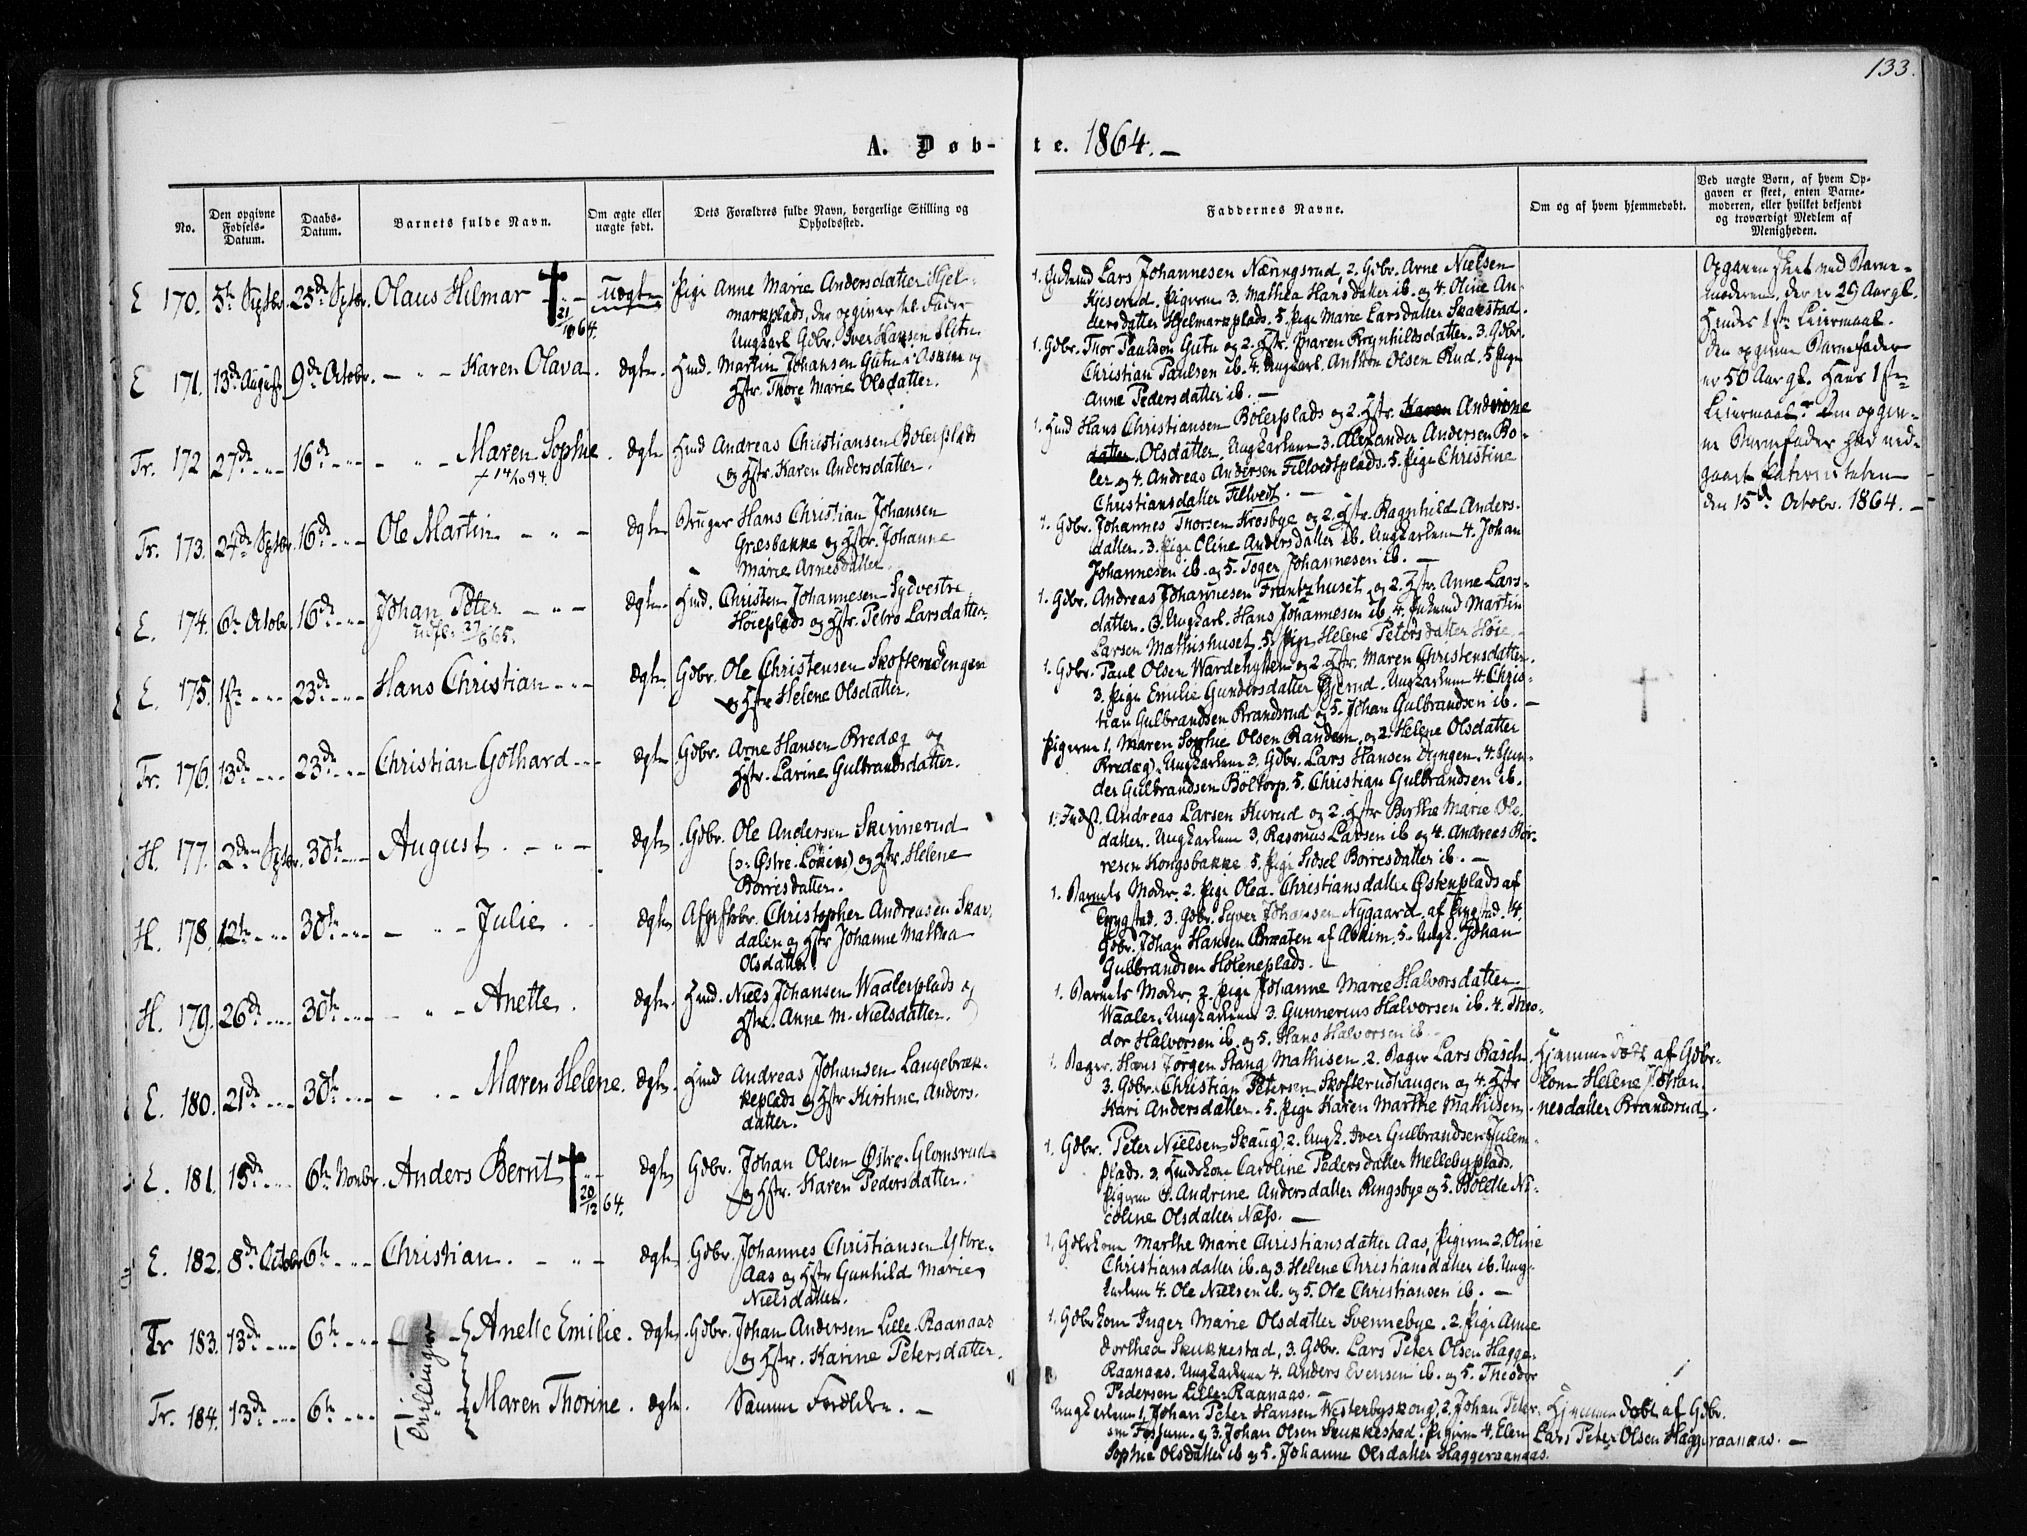 133.
A. Døb-
te. 1864.—
No.
Den opgivne Fødsels-Datum.
Daabs-Datum.
Barnets fulde Navn.
Om ægte eller uægte født.
Dets Forældres fulde Navn, borgerlige Stilling og Opholdssted.
Faddernes Navne.
Om og af hvem hjemmedøbt.
Ved uægte Børn, af hvem Op-
gaven er skeet, enten Barne-
moderen, eller hvilket bekjendt
og troværdigt Medlem af
Menigheden.
E 170. 5te Septbr. 25de Septbr. Olaus Hilmar † 21/10 64. Uægte
Pige Anne Marie Andersdatter Hjel-
markplads, der opgiver til Fader
Ungkarl Gdbr. Iver Hansen Slitu
1. Lars Johannesen Næringsrud, 2. Gdbr. Arne Nielsen
Kjeserud. Pigerne 3. Mathea Hansdatter ib. og 4. Oline An-
dersdatter Hjelmarkplads. 5. Pige Marie Larsdatter Skakstad.
Opgaven skeet ved Barne-
moderen, der er 29 Aar gl.
Hendes 1ste Leiermaal.
Den opgivne Barnefader
er 50 Aar gl. Hans 1ste
Leiermaal. Den opgiv-
ne Barnefader har ved-
gaaet Paterniteten
den 15de Octobr. 1864.—
E 171. 13de August 9de Octobr. — " — Karen Olava. Ægte.
Hmd. Martin Johansen Gutu i Askim og
Hstr. Thore Marie Olsdatter.
1. Gdbr. Thor Paulson Gutu og 2. Hstr. Maren Brynhildsdatter. 3. Gdbr.
Christian Paulsen ib. 4. Ungkarl Anthon Olsen Rud. 5. Pige
Anne Pedersdatter ib.—
Tr. 172 27de — " — 16de — " — — " — Maren Sophie. Ægte
† 14/10 94.
Hmd Andreas Christiansen Bølerplads
og Hstr. Karen Andersdatter.
1. Hmd Hans Christiansen Bølerplads og 2. Hstr. Karen Andrine
datter Olsdatter. Ungkarlene 3. Alexander Andersen Bø-
ler og 4. Andreas Andersen Tillvedtplads. 5. Pige Christine
Christiansdatter Tillvedt.—
Tr. 173. 24de Septbr. 16de — " — Ole Martin — " — Ægte
Bruger Hans Christian Johansen
Græsbakke og Hstr. Johanne
Marie Arnesdatter.
1. Gdbr. Johannes Thorsen Krosbye og 2. Hstr. Ragnhild Anders-
datter. 3. Pige Oline Andersdatter ib. Ungkarlene 4. Johan
Johannesen ib. og 5. Toger Johannesen ib.—
E. 174. 6te Octobr. 16de — " — Johan Peter — " — Ægte.
65.
Hmd. Christen Johannesen Sydvestre
Høieplads og Hstr. Petro Larsdatter.
1. Gdbr. Andreas Johannesen Frantzhuset, og 2. Hstr. Anne Lars-
datter. 3. Ungkarl. Hans Johannesen ib. 4. Martin
Larsen Mathishuset. 5. Pige Helene Petersdatter Høie.
E. 175. 1ste — " — 23de — " — Hans Christian — " — Ægte.
Gdbr. Ole Christensen Skofterudengen
og Hstr Helene Olsdatter.
1. Gdbr. Paul Olsen Wardehytten og 2. Hstr. Maren Christensdatter.
3. Pige Emilie Gundersdatter Gjerud. Ungkarlene 4. Chris-
tian Gulbrandsen Brandsrud og 5. Johan Gulbrandsen ib.—
Tr. 176. 13de — " — 23de — " — Christian Gothard — " — Ægte.
Gdbr. Arne Hansen Bredæg og
Hstr. Larine Gulbrandsdatter.
Pigerne 1. Maren Sophie Olsen Randem, og 2. Helene Olsdatter
Bredæg. Ungkarlene 3. Gdbr. Lars Hansen Dyngen. 4. Gun-
der Gulbrandsen Boltorp. 5. Christian Gulbrandsen ib.
H. 177. 2den Septbr. 30te — " — August. — " — Ægte
Gdbr. Ole Andersen Skinnerud
(ɔ: Østre Løken) og Hstr. Helene
Borresdatter.
1. Andreas Larsen Hurud og 2. Hstr Berthe Marie Ols-
datter. Ungkarlene 3. Rasmus Larsen ib og 4. Andreas Bør-
resen Kongsbakke. 5. Pige Sidsel Borresdatter ib.—
H. 178. 12te — " — 30te — " — — " — Julie. Ægte
Christopher Andreasen Skar-
dalen og Hstr Johanne Mathea
Olsdatter.
1. Barnets Moder. 2. Pige Olea Christiansdatter Østenplads af
3. Gdbr. Syver Johansen Nygaard. 4.
Gdbr. Johan Hansen Braaten af Askim. 5. Ungk. Johan
Gulbrandsen Høleneplads.—
H. 179. 26de — " — 30te — " — — " — Anette. Ægte.
Hmd. Niels Johansen Waalerplads og
Hstr. Anne M. Nielsdatter.
1. Barnets Moder. 2. Pige Johanne Marie Halvorsdatter
Waaler. Ungkarlene 3. Gunnerius Halvorsen ib. 4. Theo-
dor Halvorsen ib. og 5. Hans Halvorsen ib.
E. 180. 21de — " — 30te — " — — " — Maren Helene. Ægte.
Hmd Andreas Johansen Langebræk-
keplads og Hstr Kirstine Anders-
datter.
1. Bager. Hans Jørgen Stang Mathisen. 2. Bager Lars Basch.
3. Gdbr. Christian Petersen Skofterudhaugen og 4. Hstr
Kari Andersdatter. 5. Pige Karen Marthe Mathisen.
Hjemmedøbt af Gdbr-
kone Helene Johan-
nesdatter Brandsrud.
E. 181. 15de — " — 6te Novbr. Anders Bernt † 20/12 64. Ægte
Gdbr. Johan Olsen Østre-Glomsrud
og Hstr. Karen Pedersdatter.
1. Gdbr. Peter Nielsen Skaug, 2. Ungk. Iver Gulbrandsen Julem-
plads. 3. Hmdskone Caroline Pedersdatter Mellebyplads,
Pigerne 4. Andrine Andersdatter Ringsbye og 5. Bolette Ni-
coline Olsdatter Næss.—
E. 182. 8de Octobr. 6te — " — Christian. — " — Ægte
Gdbr. Johannes Christiansen Ytre-
Aas og Hstr Gunhild Marie
Nielsdatter.
1. Gdbrkone Marthe Marie Christiansdatter Aas, Pigerne 2. Oline
Christiansdatter ib. og 3. Helene Christiansdatter ib. Ung-
karlene 4. Ole Nielsen ib. og 5. Ole Christiansen ib.—
Tr 183. 13de — " — 6te — " — Anette Emilie. Ægte.
Tvillinger
Gdbr. Johan Andersen Lille Raanaas
og Hstr. Karine Petersdatter.
1. Gdbrkone Inger Marie Olsdatter Svennebye. 2. Pige Anne
Dorthea Skukkestad, 3. Gdbr. Lars Peter Olsen Hagge-
Raanaas. Ungkarlene 4. Anders Evensen ib. og 5. Theodor
Pedersen Lille-Raanaas.—
Tr. 184. 13de — " — 6te — " — Maren Thorine. Ægte.
Samme Forældre.—
Ungkarlene 1. Johan Peter Hansen Westerbyskoug, 2. Johan Peter-
sen Fossum. og 3. Johan Olsen Skukkestad. Pigerne 4. Elen
Sophie Olsdatter ib og 5. Johanne Olsdatter Haggeraanaas.
Hjemmedøbt af Gdbr.
Lars Peter Olsen Haggeraanaas.—